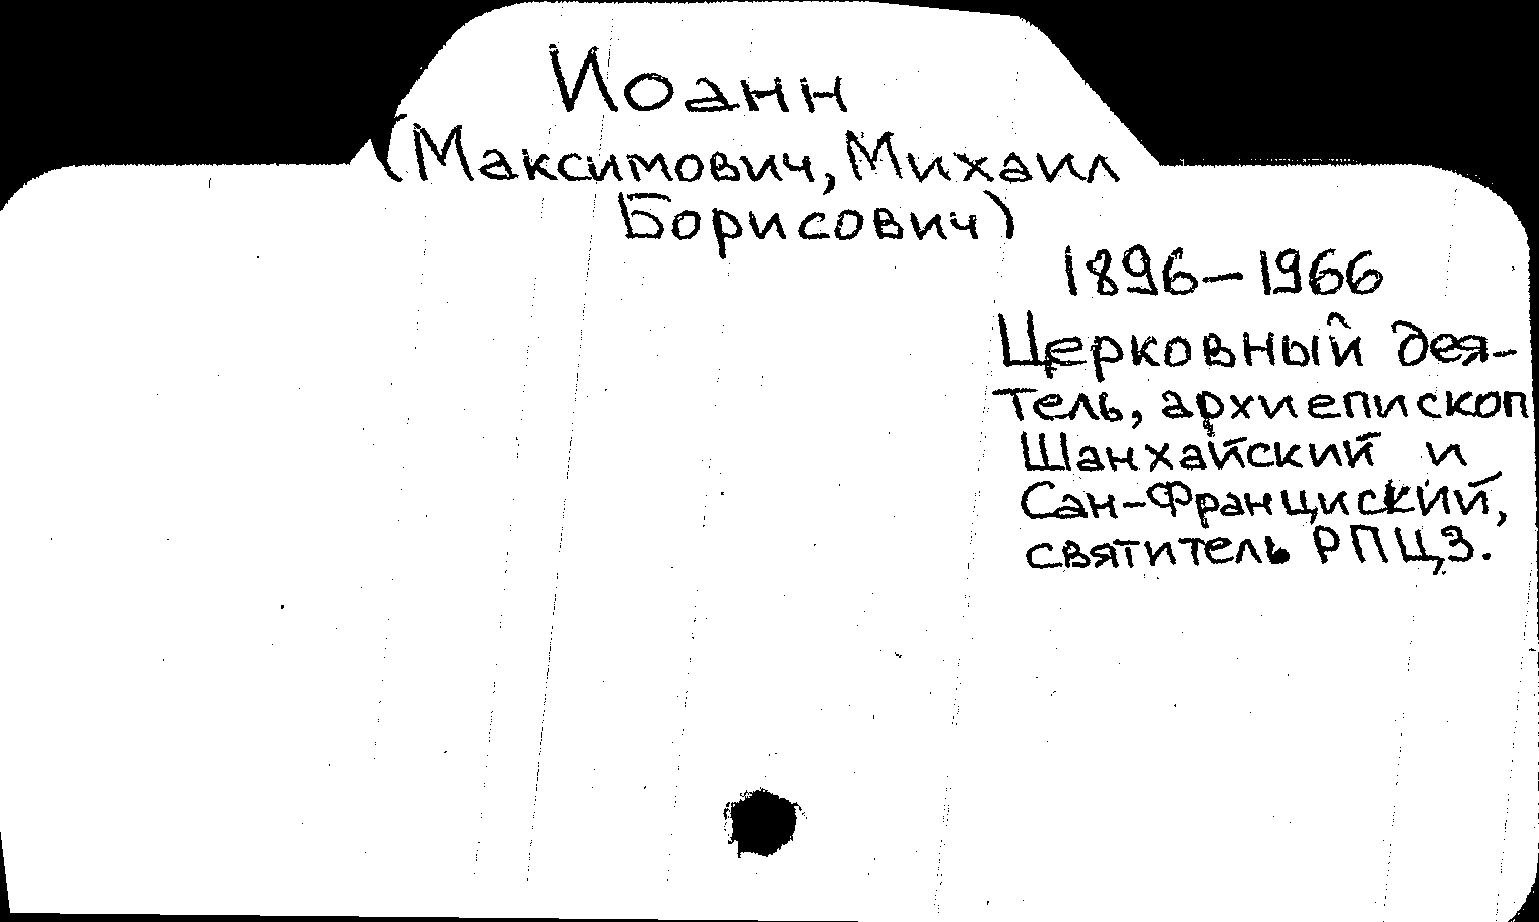 Иоанн
(Максимович, Михаил
Борисович)
1896–1966
Церковный дея-
тель, архиепископ
Шанхайский и
Сан-Франциский,
святитель РПЦЗ.